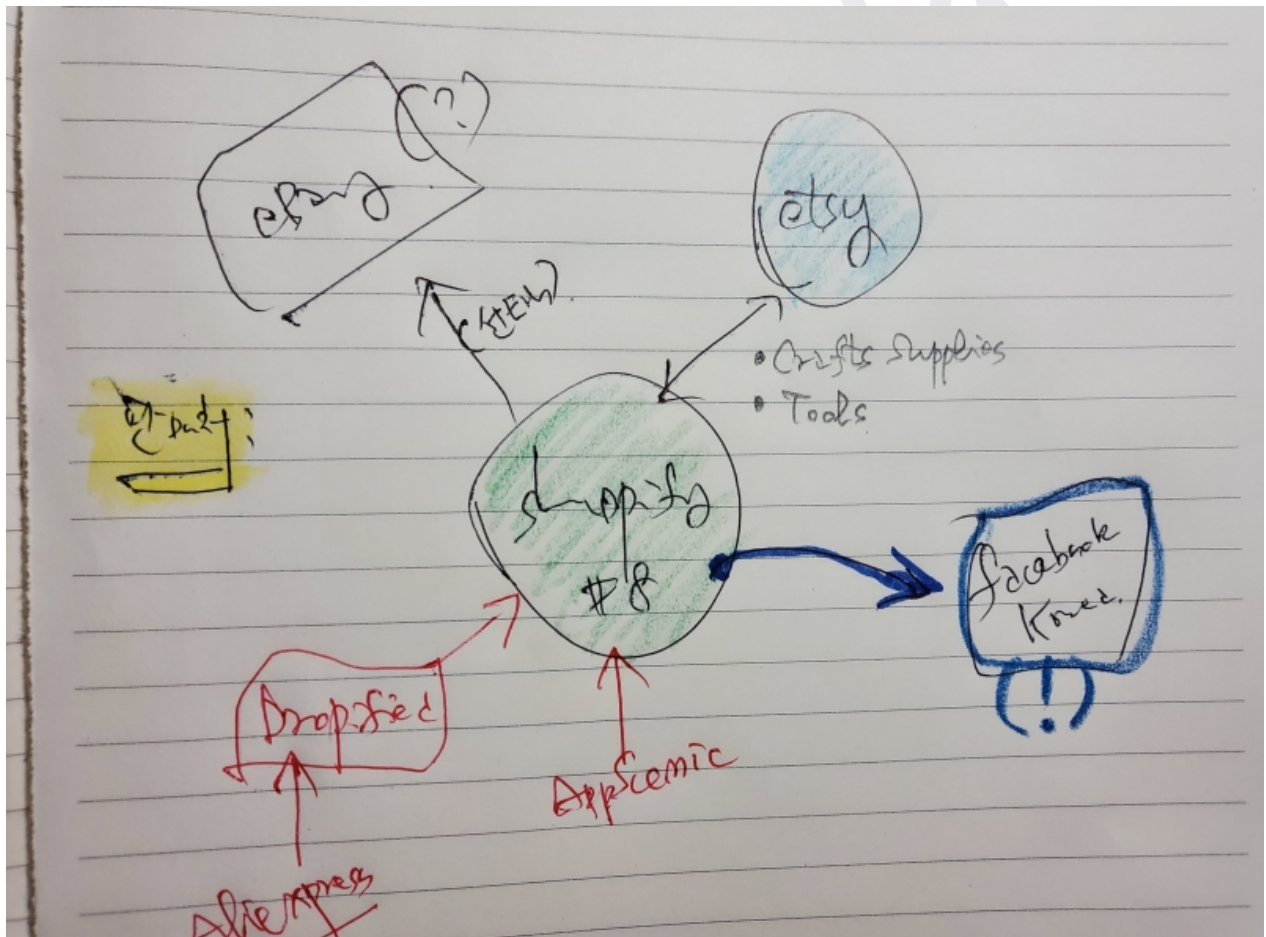 (?)
ebay
etsy
(선택).
• Crafts Supplies
• Tools
shoppify
#8
facebook
Korea.
(!)
Dropified
AppScenic
Aliexpress